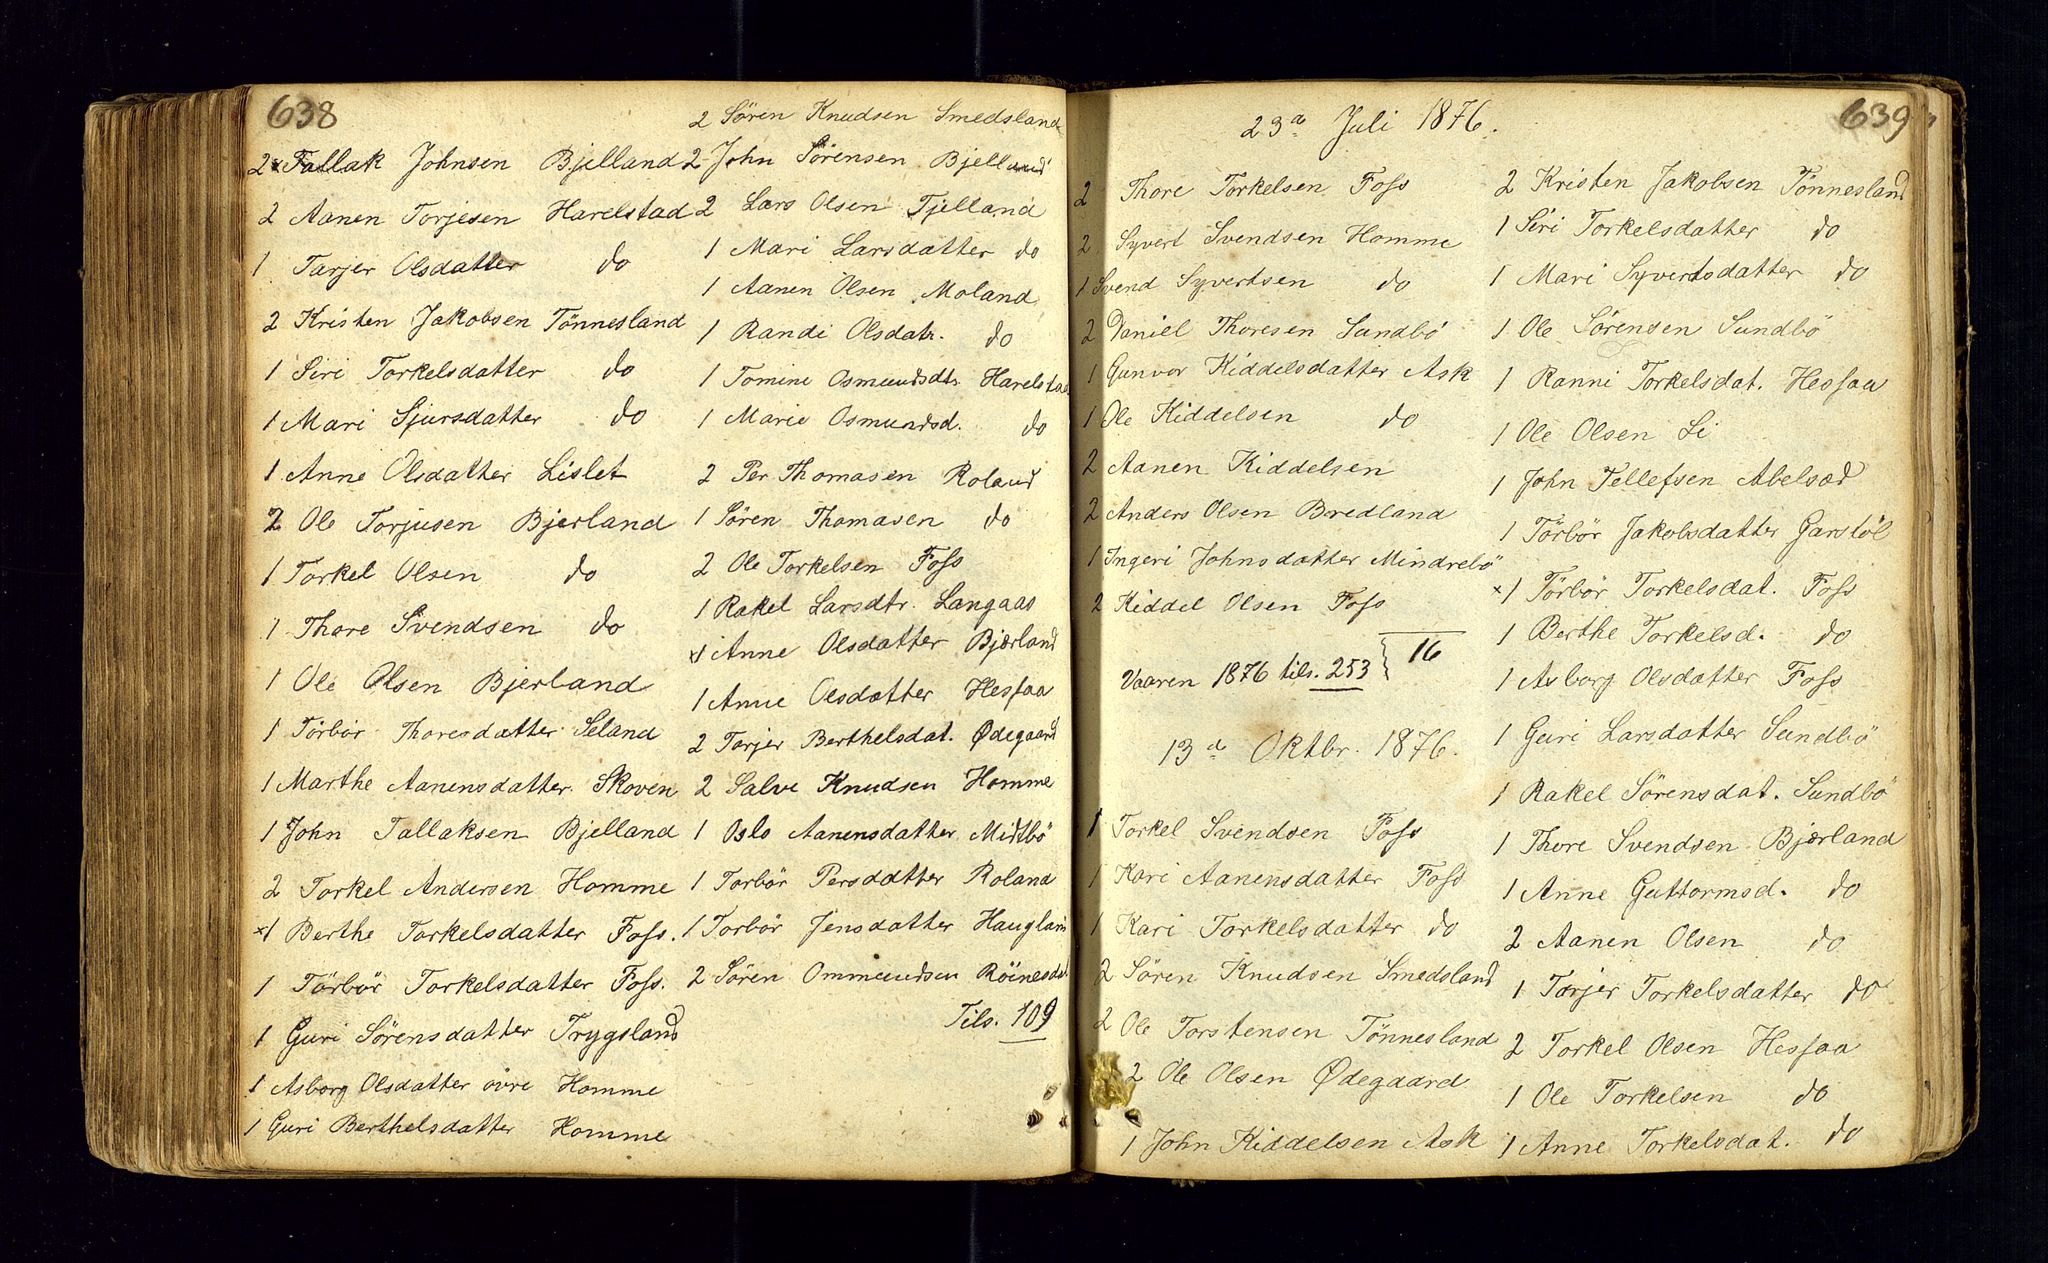 638
2 Tallak Johnsen Bjelland
2 Aanen Torjesen Harelstad
1 Tarjer Olsdatter do
2 Kristen Jakobsen Tönnesland
1 Siri Torkelsdatter do
1 Mari Sjursdatter do
1 Anne Olsdatter Lislet
2 Ole Torjusen Bjerland
1 Torkel Olsen do
1 Thore Svendsen do
1 Ole Olsen Bjerland
1 Törbör Thoresdatter Seland
1 Marthe Aanensdatter Skoven
1 John Tallaksen Bjelland
2 Torkel Andersen Homme
×1 Berthe Torkelsdatter Foss.
1 Törbör Torkelsdatter Foss.
1 Guri Sörensdatter Trygsland
1 Asborg Olsdatter övre Homme
1 Guri Berthelsdatter Homme
2 Sören Knudsen Smedsland
2 John Sörensen Bjelland
2 Lars Olsen Tjelland
1 Mari Larsdatter do
1 Aanen Olsen Moland
1 Randi Olsdatr. do
1 Tomine Osmundsdtr Harelstad
1 Marie Osmundsd. do
2 Per Thomasen Roland
1 Sören Thomasen do
2 Ole Torkelsen Foss
1 Rakel Larsdtr. Langaas
×1 Anne Olsdatter Bjærland
1 Anne Olsdatter Hessaa
2 Torjer Berthelsdat. Ødegaard
2 Salve Knudsen Homme
1 Oslo Aanensdatter Midtbö
1 Torbör Persdatter Roland
1 Torbör Jensdatter Haugland
2 Sören Ommundsen Röinesdal
Tils. 109
639
23de Juli 1876.
2 Thore Torkelsen Foss
2 Syvert Svendsen Homme
1 Svend Syvertsen do
2 Daniel Thoresen Sundbö
1 Gunvor Kiddelsdatter Ask
1 Ole Kiddelsen do
2 Aanen Kiddelsen
2 Anders Olsen Bredland
1 Ingeri Johnsdatter Mindrebö
2 Kiddel Olsen Foss
16
Vaaren 1876 tils. 253
13de Oktbr. 1876.
1 Torkel Svendsen Foss
1 Kari Aanensdatter Foss
1 Kari Torkelsdatter do
2 Sören Knudsen Smedsland
2 Ole Torstensen Tönnesland
2 Ole Olsen Ødegaard
1 John Kiddelsen Ask
2 Kristen Jakobsen Tönnesland
1 Siri Torkelsdatter do
1 Mari Syvertsdatter do
1 Ole Sörensen Sundbö
1 Ranni Torkelsdat. Hessaa
1 Ole Olsen Li
1 John Tellefsen Abelsæd
1 Törbör Jakobsdatter Garstöl
×1 Törbör Torkelsdat. Foss
1 Berthe Torkelsd. do
1 Asborg Olsdatter Foss
1 Guri Larsdatter Sundbö
1 Rakel Sörensdat. Sundbö
1 Thore Svendsen Bjærland
1 Anne Guttormsd. do
2 Aanen Olsen do
1 Torjer Torkelsdatter do
2 Torkel Olsen Hessaa
1 Ole Torkelsen do
1 Anne Torkelsdat. do